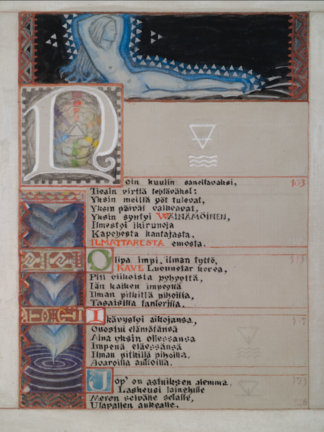 Noin kuulin saneltavaksi,
Tiesin virttä tehtäväksi:
Yksin meillä yöt tulevat,
Yksin päivät valkeavat,
Yksin syntyi WÄINÄMÖINEN,
Ilmestyi ikirunoja
Kapehesta kantajasta,
ILMATTARESTA emosta.
Olipa impi, ilman tyttö,
KAVE Luonnotar korea,
Piti viikoista pyhyyttä,
Iän kaiken impeyttä
Ilman pitkillä pihoilla,
Tasaisilla tanterilla.
Ikävystyi aikojansa,
Ouostui elämätänsä
Aina yksin ollessansa
Impenä eläessänsä
Ilman pitkillä pihoilla,
Avaroilla autioilla.
Jop' on astuiksen alemma
Laskeusi lainehille
Meren selvälle selälle,
Ulapallen aukealle.